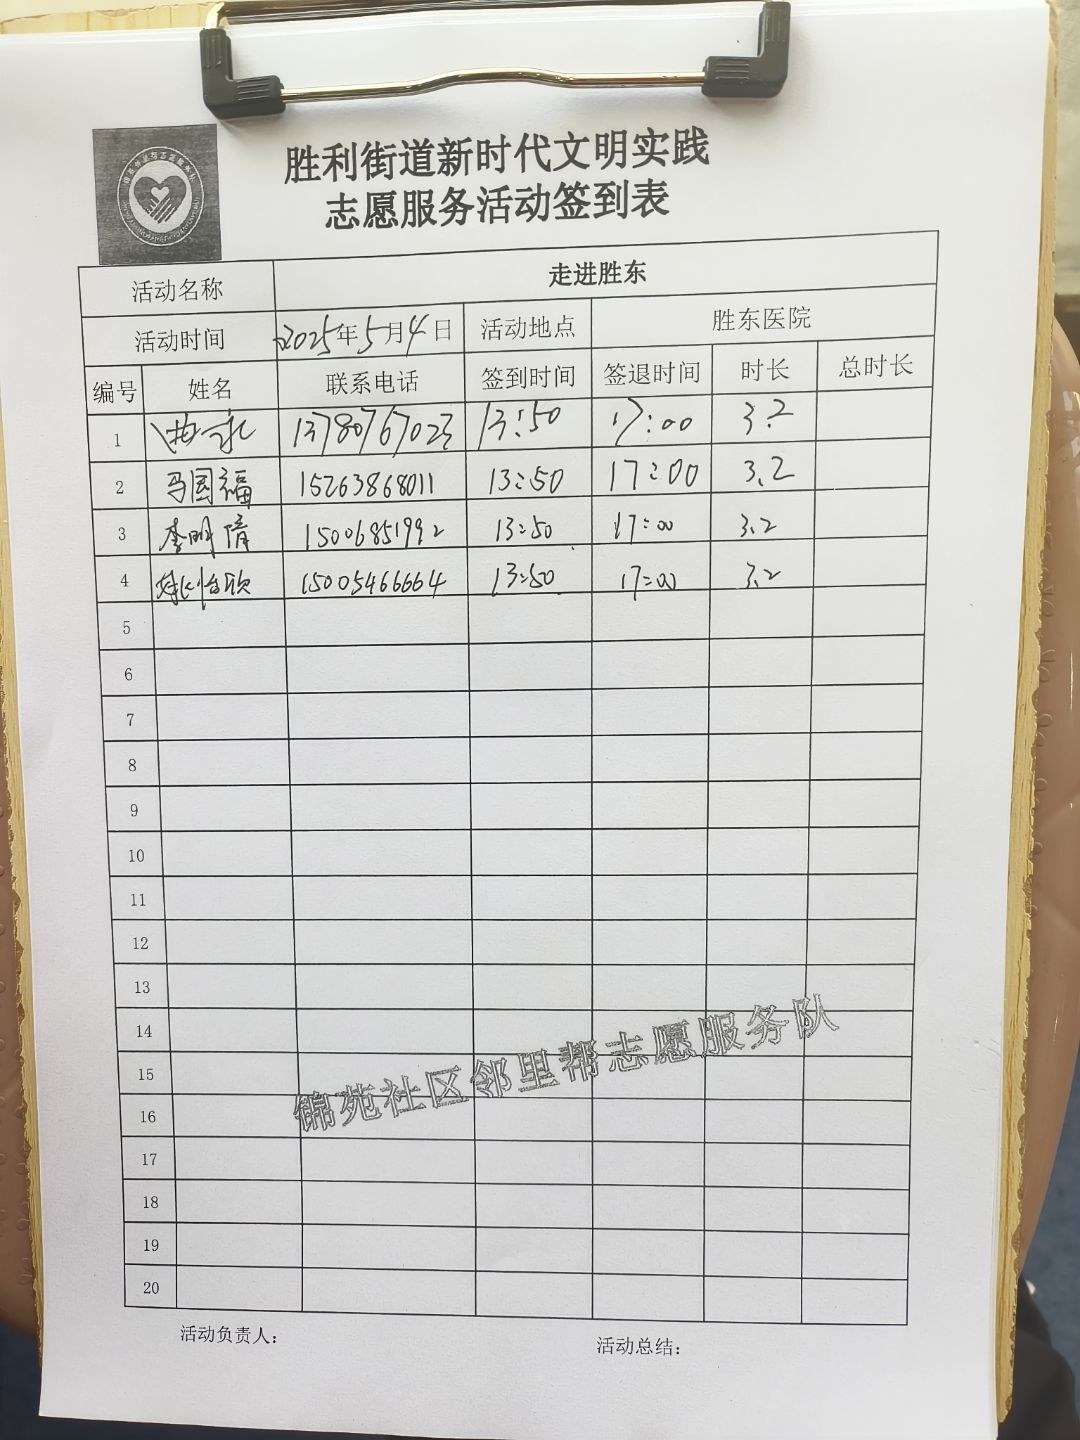 胜利街道新时代文明实践
志愿服务活动签到表
活动名称 走进胜东
活动时间 2025年5月4日 活动地点 胜东医院
编号 姓名 联系电话 签到时间 签退时间 时长 总时长
1 13780767023 13:50 17:00 3.2
2 马国福 15263868011 13:50 17:00 3.2
3 李明 15006851992 13:50 17:00 3.2
4 怡欣 15005466664 13:50 17:00 3.2
5
6
7
8
9
10
11
12
13
14
15
16
17
18
19
20
锦苑社区邻里帮志愿服务队
活动负责人: 活动总结: